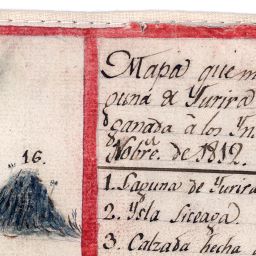 16.
Mapa que m
guna de Yurira
ganada à los Yn
Nobre. de 1812.
1. Laguna de Yurira
2. Ysla Liceaga
3. Calzada hecha